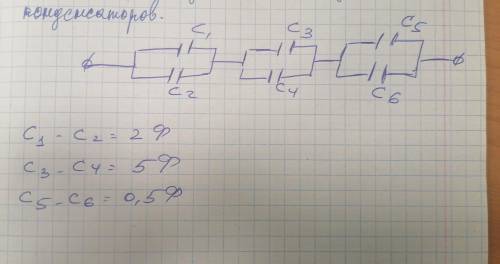 конденсаторов.
C₁ C₃ C₅
C₂ C₄ C₆
C₁ - C₂ = 2 Ф
C₃ - C₄ = 5 Ф
C₅ - C₆ = 0,5 Ф